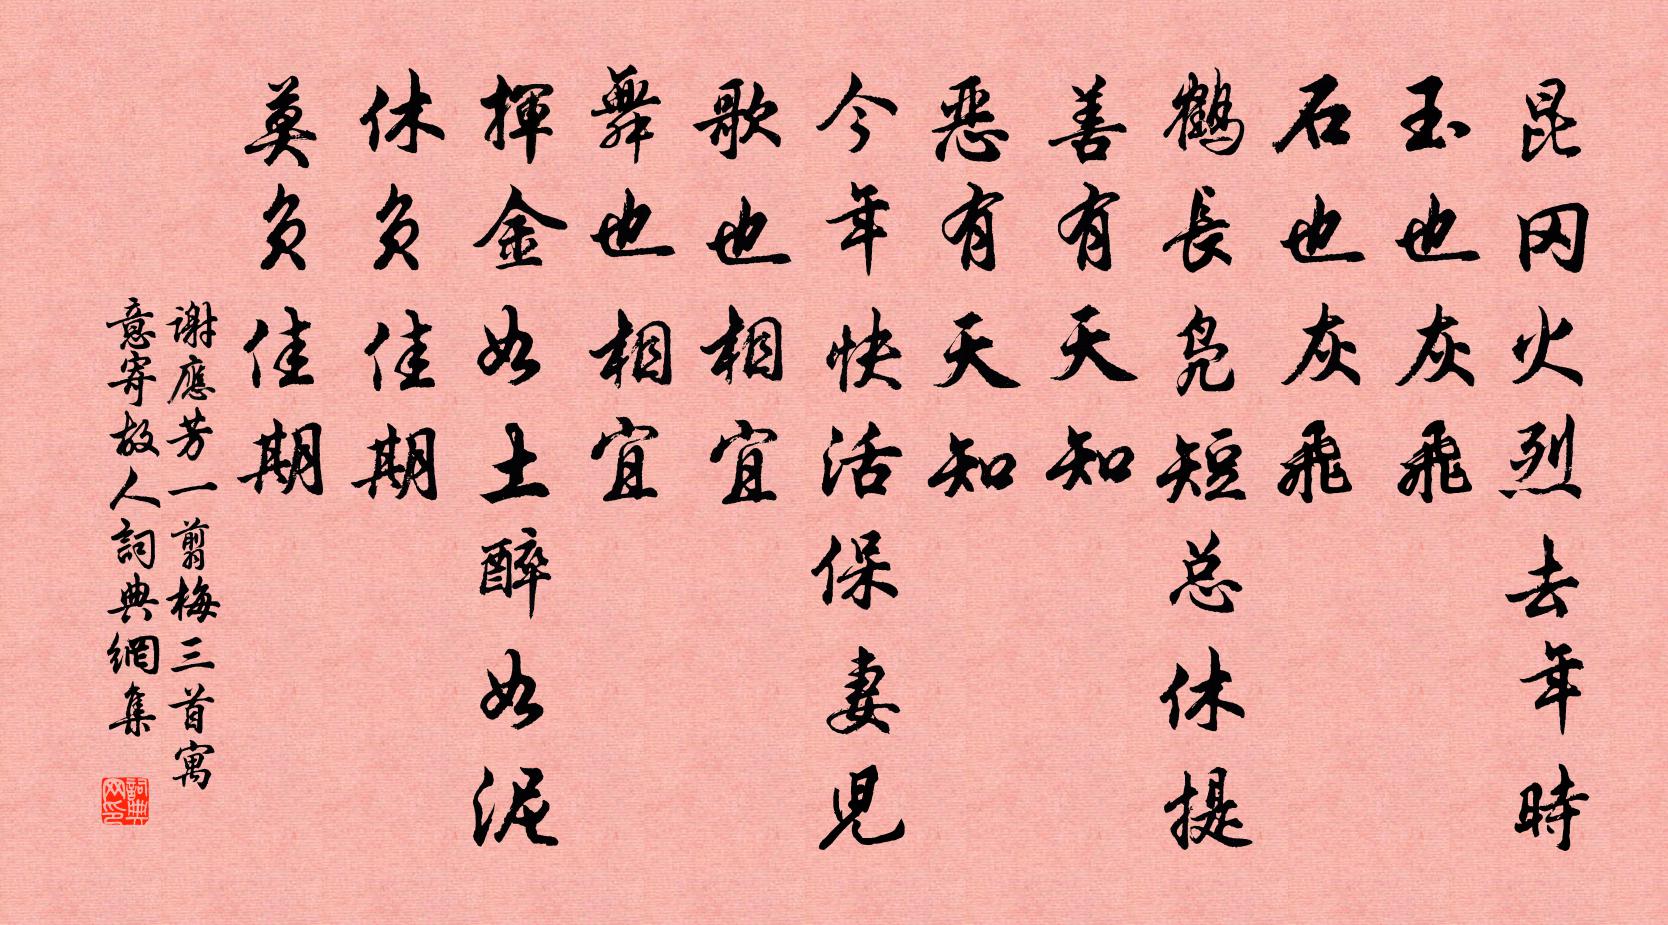 昆冈火烈去年時
玉也灰飛
石也灰飛
鶴長凫短总休提
善有天知
惡有天知
今年快活保妻児
歌也相宜
舞也相宜
揮金如土醉如泥
休負佳期
莫負佳期
謝應芳一翦梅三首寓
意寄故人詞典網集
詞典
网印